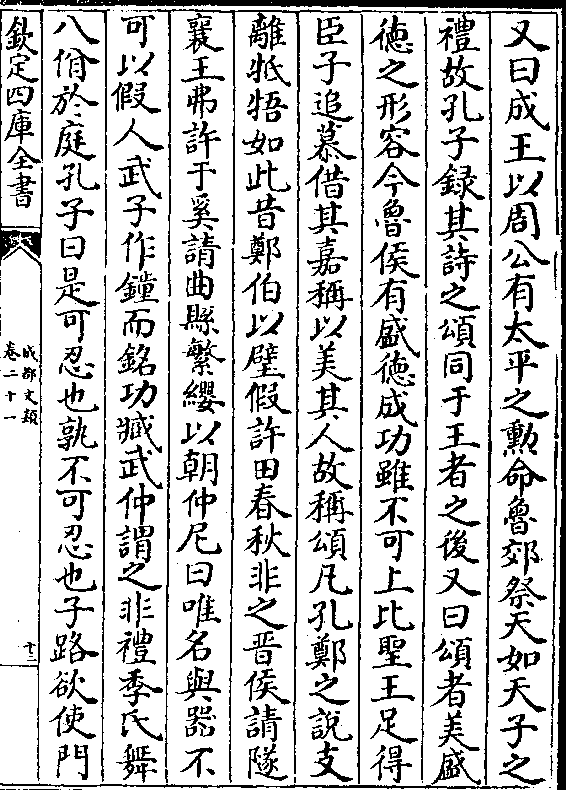 又曰成王以周公有太平之勲命魯郊祭天如天子之
禮故孔子録其詩之頌同于王者之後又曰頌者美盛
徳之形容今魯侯有盛徳成功雖不可上比聖王足得
臣子追慕借其嘉稱以美其人故稱頌凡孔鄭之說支
離牴牾如此昔鄭伯以璧假許田春秋非之晉侯請隧
襄王弗許于奚請曲縣繁纓以朝仲尼曰唯名與器不
可以假人武子作鐘而銘功臧武仲謂之非禮季氏舞
八佾於庭孔子曰是可忍也孰不可忍也子路欲使門
欽定四庫全書
成都文類
卷二十一
十三